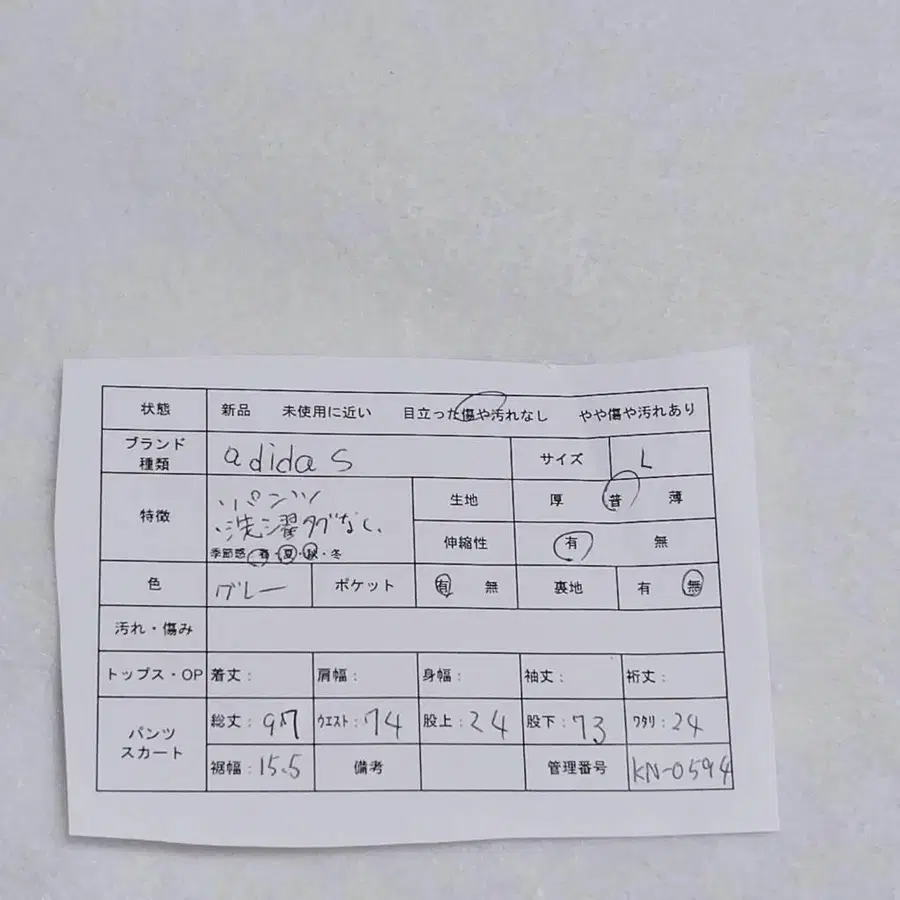 状態 新品 未使用に近い 目立った傷や汚れなし やや傷や汚れあり
ブランド 種類 adidas サイズ L
特徴 パンツ 生地 厚 普 薄
洗濯タグなし 伸縮性 有 無
季節感 春・夏・秋・冬
色 グレー ポケット 有 無 裏地 有 無
汚れ・傷み
トップス・OP 着丈: 肩幅: 身幅: 袖丈: 裄丈:
パンツ スカート 総丈:97 ウエスト:74 股上:24 股下:73 ワタリ:24
裾幅:15.5 備考 管理番号 KN-0594